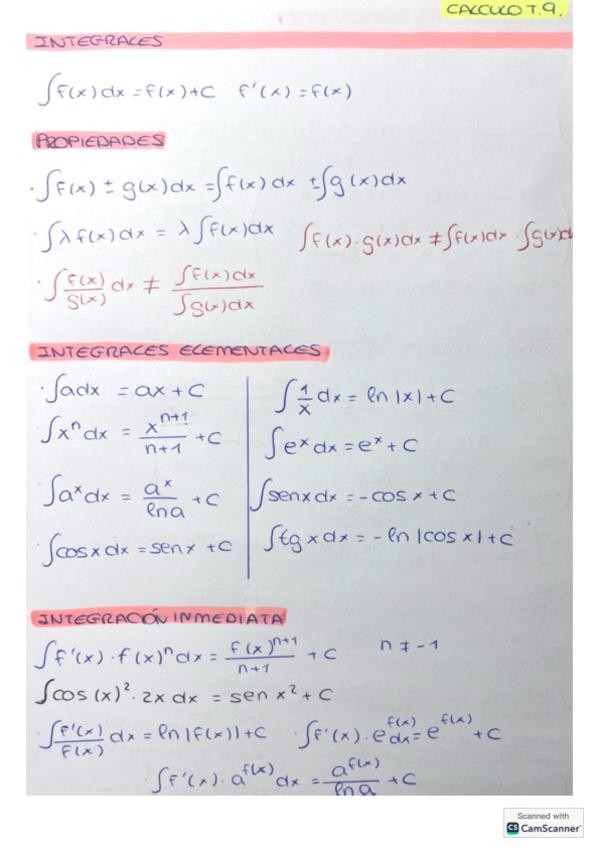 CALCULO T.9.
INTEGRALES
∫f(x)dx = f(x)+C f'(x) = f(x)
PROPIEDADES
· ∫f(x) ± g(x)dx = ∫f(x)dx ± ∫g(x)dx
· ∫λ f(x)dx = λ ∫f(x)dx ∫f(x)·g(x)dx ≠ ∫f(x)dx · ∫g(x)d
· ∫ f(x)/g(x) dx ≠ ∫f(x)dx / ∫g(x)dx
INTEGRALES ELEMENTALES
· ∫adx = ax + C
∫xⁿdx = xⁿ⁺¹/n+1 + C
∫aˣdx = aˣ/lna + C
· ∫cosxdx = senx + C
∫ 1/x dx = ln|x| + C
∫eˣdx = eˣ + C
∫senxdx = -cosx + C
∫tgxdx = -ln|cosx| + C
INTEGRACIÓN INMEDIATA
∫f'(x)·f(x)ⁿdx = f(x)ⁿ⁺¹/n+1 + C n ≠ -1
∫cos(x)²·2xdx = sen x² + C
· ∫ f'(x)/f(x) dx = ln|f(x)| + C · ∫f'(x)·e^f(x) dx = e^f(x) + C
· ∫f'(x)·a^f(x) dx = a^f(x)/lna + C
Scanned with
CS CamScanner